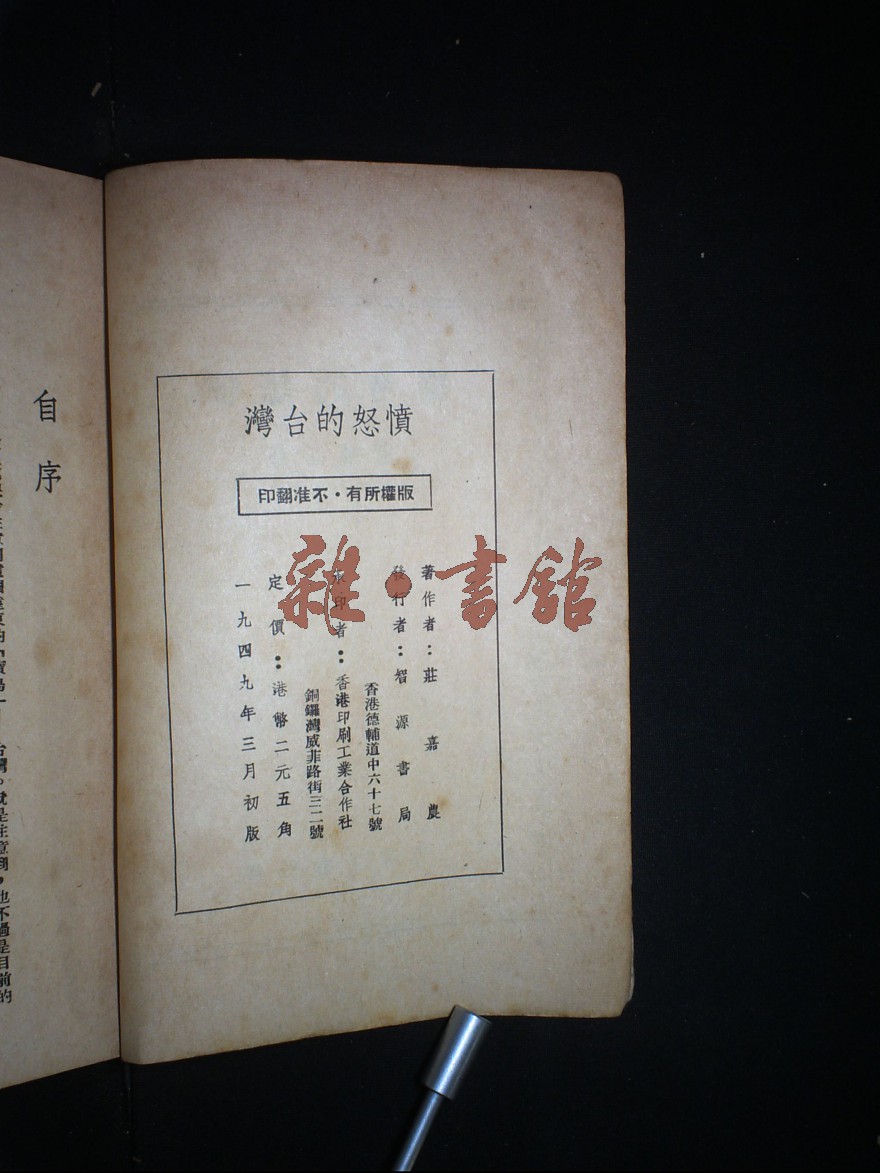 憤怒的台灣
版權所有·不准翻印
著作者：莊嘉農
發行者：智源書局
香港德輔道中六十七號
承印者：香港印刷工業合作社
銅鑼灣威菲路街三二號
定價：港幣二元五角
一九四九年三月初版
雜·書館
自序
台灣。就是注意到，也不過是目前的